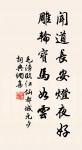 聞道長安燈夜好
雕輪寶馬如雲
毛滂臨江仙都城元夕